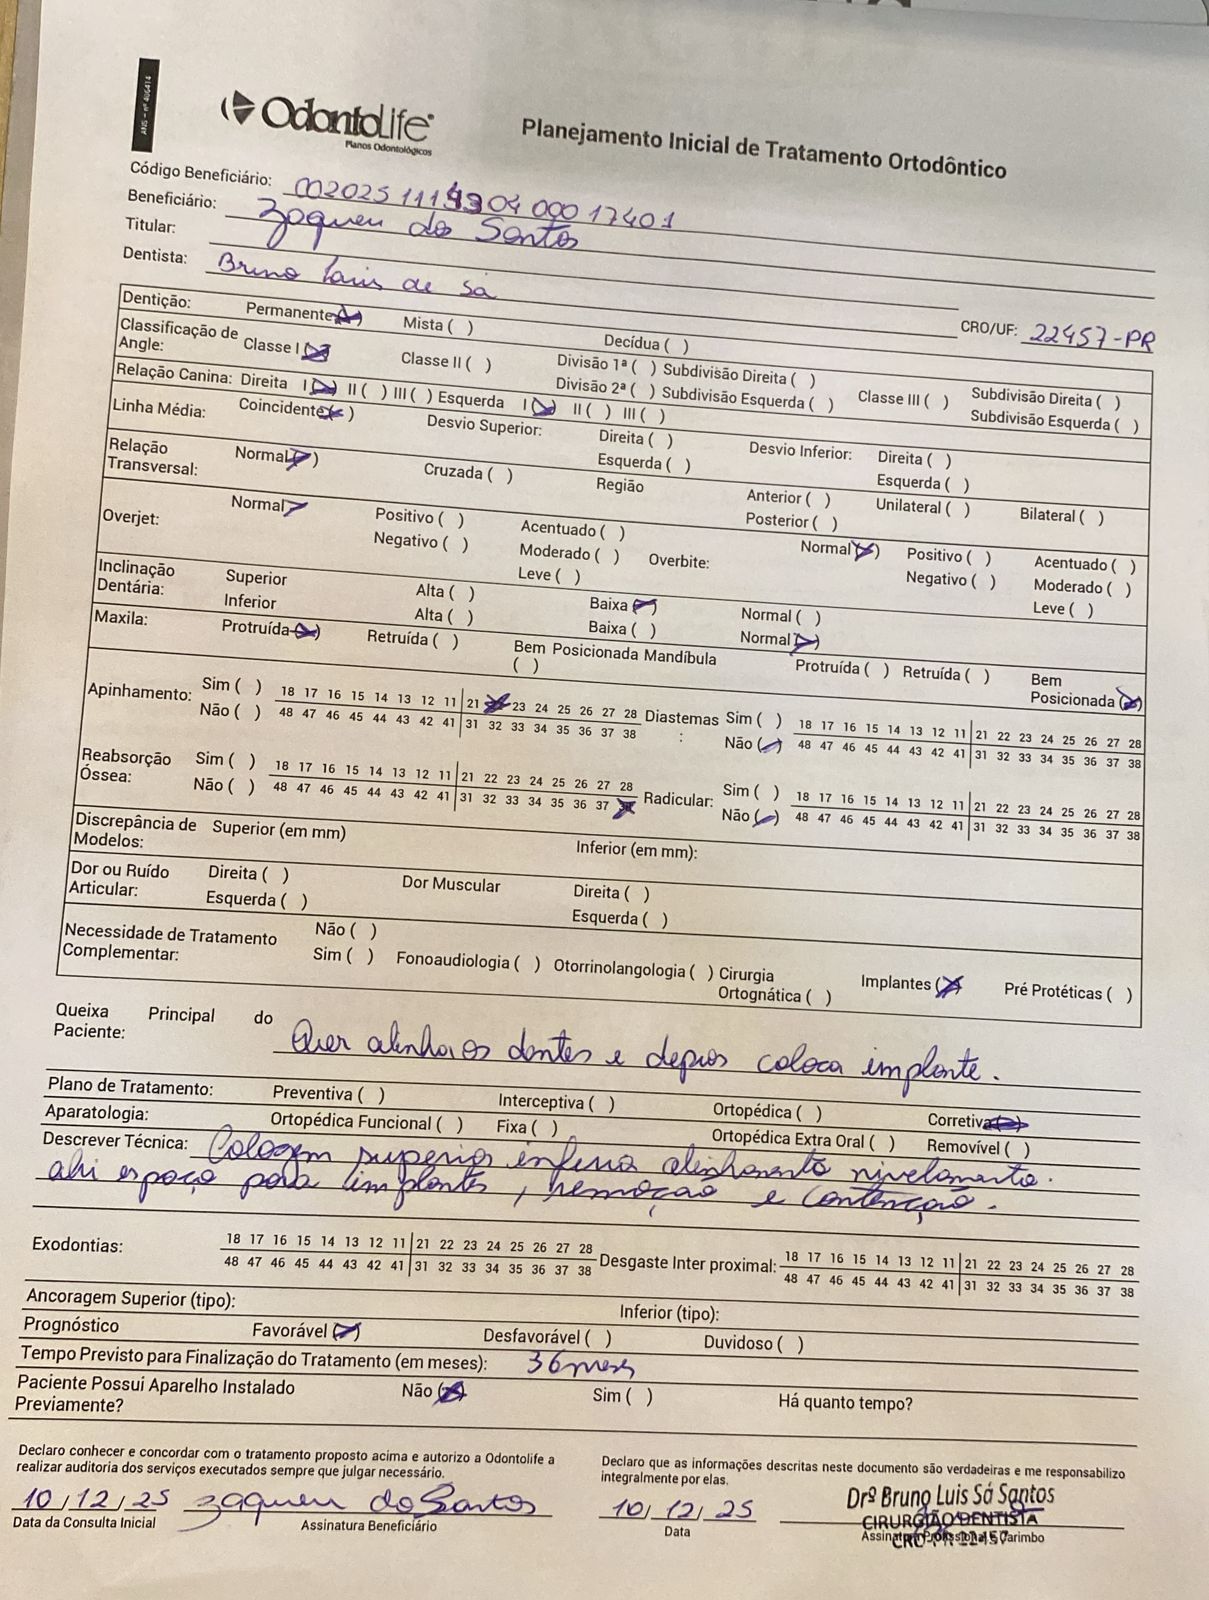 ANS - nº 406414
OdontoLife
Planos Odontológicos
Planejamento Inicial de Tratamento Ortodôntico
Código Beneficiário:
Beneficiário: Zaqueu dos Santos
Titular:
Dentista: Bruno Luis de Sá CRO/UF: 22457-PR
Dentição: Permanente (X) Mista ( ) Decídua ( )
Classificação de Angle: Classe I (X) Classe II ( ) Divisão 1ª ( ) Subdivisão Direita ( ) Classe III ( ) Subdivisão Direita ( )
Divisão 2ª ( ) Subdivisão Esquerda ( ) Subdivisão Esquerda ( )
Relação Canina: Direita I (X) II ( ) III ( ) Esquerda I (X) II ( ) III ( )
Linha Média: Coincidente (X) Desvio Superior: Direita ( ) Desvio Inferior: Direita ( )
Esquerda ( ) Esquerda ( )
Relação Transversal: Normal (X) Cruzada ( ) Região Anterior ( ) Unilateral ( ) Bilateral ( )
Posterior ( )
Overjet: Normal (X) Positivo ( ) Acentuado ( ) Overbite: Normal (X) Positivo ( ) Acentuado ( )
Negativo ( ) Moderado ( ) Negativo ( ) Moderado ( )
Leve ( ) Leve ( )
Inclinação Dentária: Superior Alta ( ) Baixa (X) Normal ( )
Inferior Alta ( ) Baixa ( ) Normal (X)
Maxila: Protruída (X) Retruída ( ) Bem Posicionada ( ) Mandíbula Protruída ( ) Retruída ( ) Bem Posicionada (X)
Apinhamento: Sim ( ) 18 17 16 15 14 13 12 11 21 23 24 25 26 27 28 Diastemas: Sim ( ) 18 17 16 15 14 13 12 11 21 22 23 24 25 26 27 28
Não ( ) 48 47 46 45 44 43 42 41 31 32 33 34 35 36 37 38 Não (X) 48 47 46 45 44 43 42 41 31 32 33 34 35 36 37 38
Reabsorção Óssea: Sim ( ) 18 17 16 15 14 13 12 11 21 22 23 24 25 26 27 28 Radicular: Sim ( ) 18 17 16 15 14 13 12 11 21 22 23 24 25 26 27 28
Não ( ) 48 47 46 45 44 43 42 41 31 32 33 34 35 36 37 Não (X) 48 47 46 45 44 43 42 41 31 32 33 34 35 36 37 38
Discrepância de Modelos: Superior (em mm) Inferior (em mm):
Dor ou Ruído Articular: Direita ( ) Dor Muscular Direita ( )
Esquerda ( ) Esquerda ( )
Necessidade de Tratamento Complementar: Não ( )
Sim ( ) Fonoaudiologia ( ) Otorrinolangologia ( ) Cirurgia Ortognática ( ) Implantes (X) Pré Protéticas ( )
Queixa Principal do Paciente: Quer alinha os dentes e depois coloca implante.
Plano de Tratamento: Preventiva ( ) Interceptiva ( ) Ortopédica ( ) Corretiva (X)
Aparatologia: Ortopédica Funcional ( ) Fixa ( ) Ortopédica Extra Oral ( ) Removível ( )
Descrever Técnica: Colagem superior inferio alinhamento nivelamento.
abri espaço para implantes, remoção e contenção.
Exodontias: 18 17 16 15 14 13 12 11 21 22 23 24 25 26 27 28 Desgaste Inter proximal: 18 17 16 15 14 13 12 11 21 22 23 24 25 26 27 28
48 47 46 45 44 43 42 41 31 32 33 34 35 36 37 38 48 47 46 45 44 43 42 41 31 32 33 34 35 36 37 38
Ancoragem Superior (tipo): Inferior (tipo):
Prognóstico Favorável (X) Desfavorável ( ) Duvidoso ( )
Tempo Previsto para Finalização do Tratamento (em meses): 36 meses
Paciente Possui Aparelho Instalado Previamente? Não (X) Sim ( ) Há quanto tempo?
Declaro conhecer e concordar com o tratamento proposto acima e autorizo a Odontolife a
realizar auditoria dos serviços executados sempre que julgar necessário.
Declaro que as informações descritas neste documento são verdadeiras e me responsabilizo
integralmente por elas.
10/12/25 Zaqueu do Santos 10/12/25
Data da Consulta Inicial Assinatura Beneficiário Data
Drº Bruno Luis Sá Santos
CIRURGIÃO DENTISTA
Assinatura Profissional, Carimbo
CRO-PR 22457